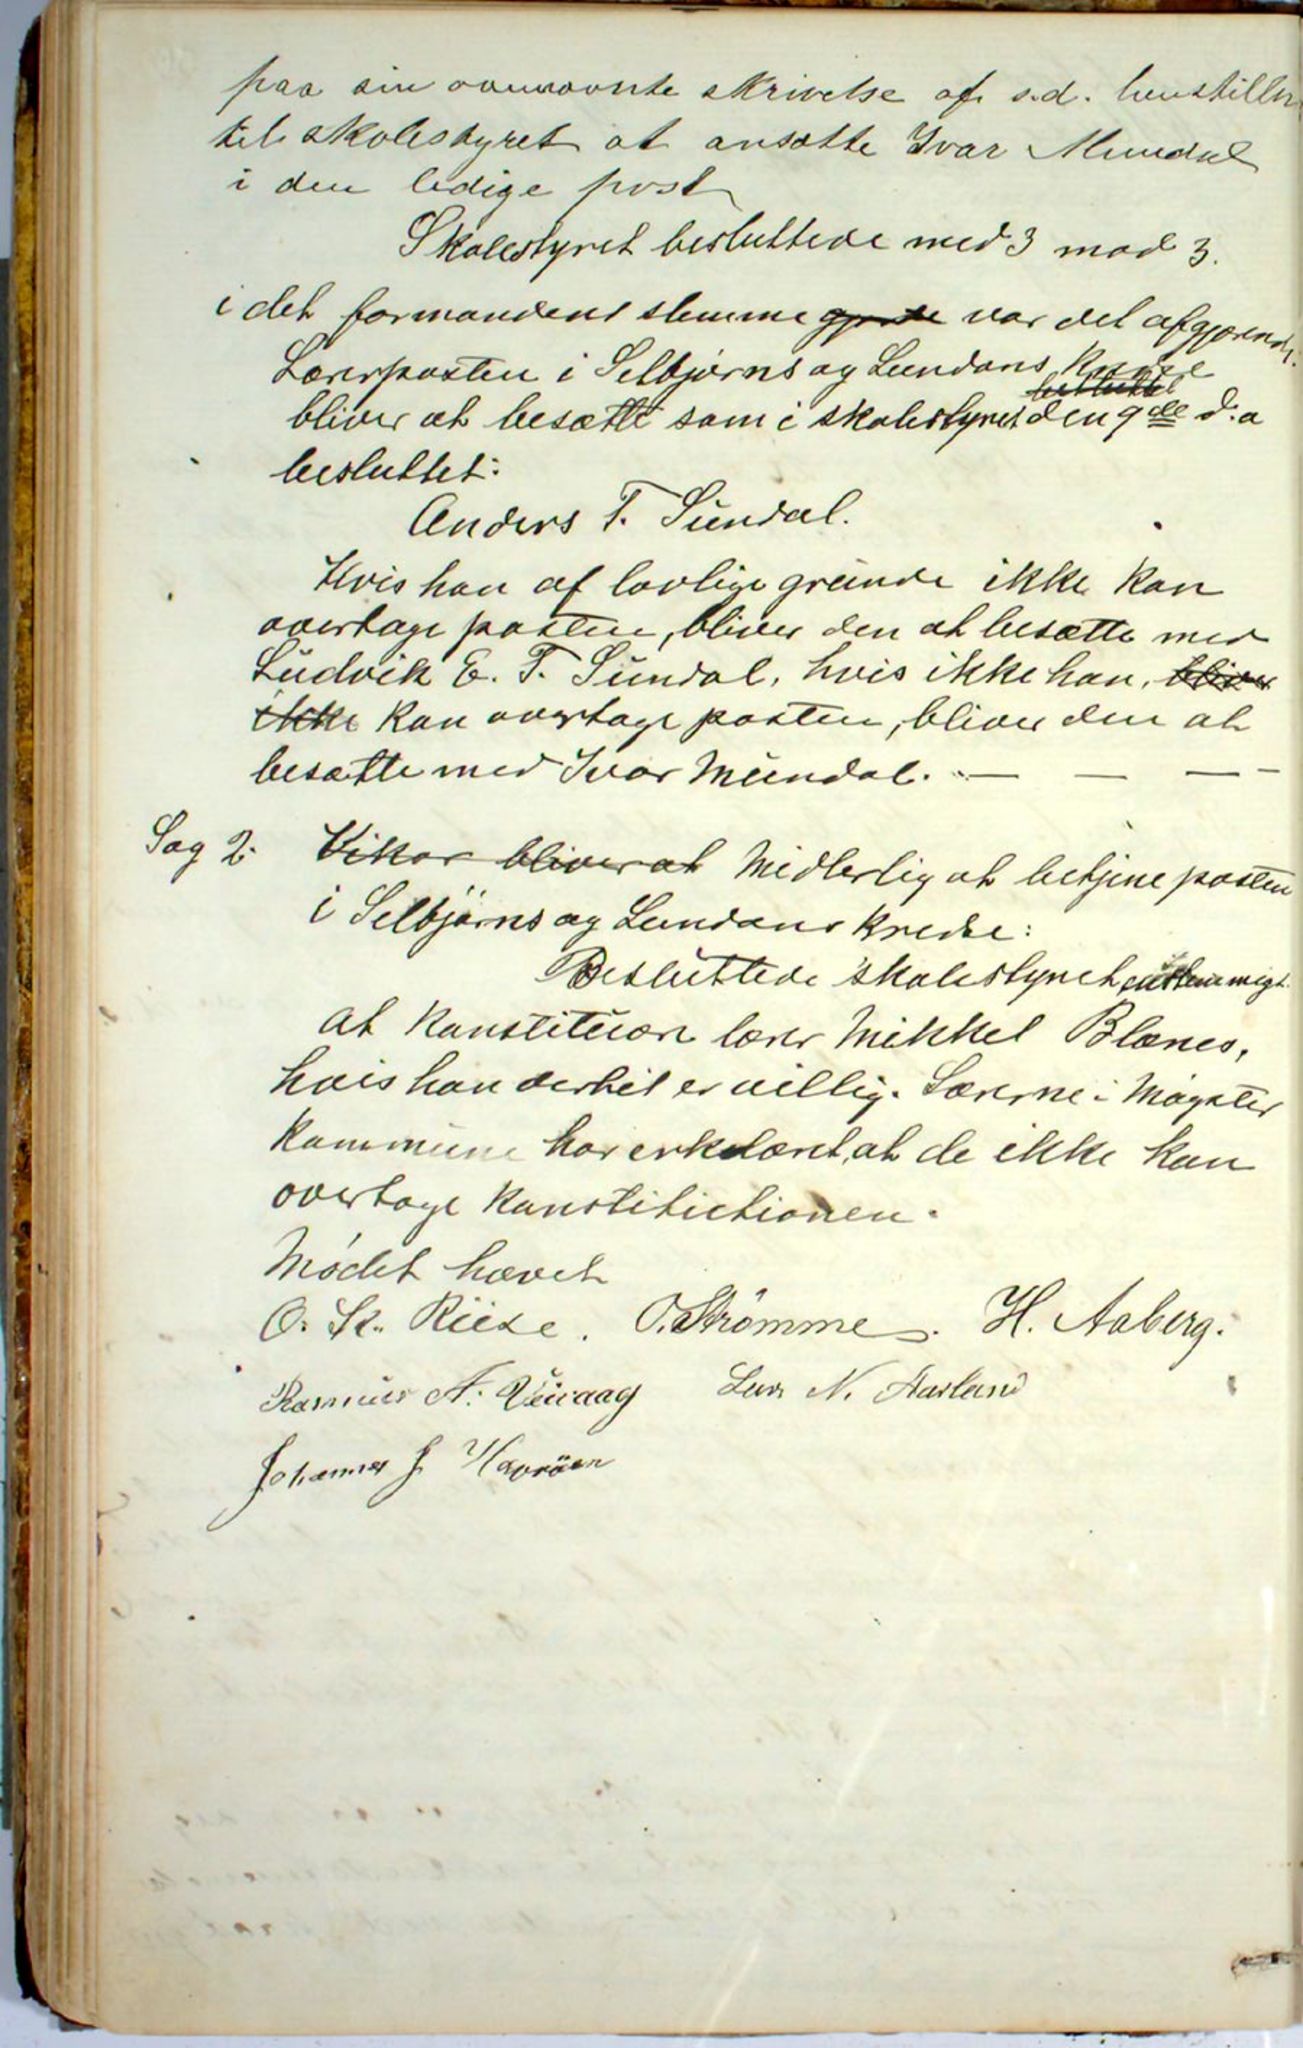 paa sin ovennævnte skrivelse af s.d. henstiller
til skolestyret at ansætte Ivar Mundal
i den ledige post
Skolestyret besluttede med 3 mod 3.
i det formandens stemme gjorde var det afgjørende.
Lærerposten i Selbjørns og Lundans Kredse
bliver at besætte som i skolestyret besluttet den 9de d.a
besluttet:
Anders T. Sündal.
Hvis han af lovlige gründe ikke kan
overtage posten, bliver den at besætte med
Lüdvik E. T. Sündal, hvis ikke han, bliver
ikke kan overtage posten, bliver den at
besætte med Ivar Mündal. — — —
Sag 2. Vikar bliver at Midlertig at betjene posten
i Selbjørns og Lundans kredse:
Beslüttede skolestyret enstemmigt
at Konstitüere lærer Mikkel Blænes,
hvis han dertil er villig. Lærerne i Møgster
Kommüne har erklæret, at de ikke kan
overtage Konstitütionen.
Mødet hævet
O. Sk. Riise. O. Strömme. H. Aaberg.
Rasmus A. Lars N. Aarland
Johannes J. Havröen